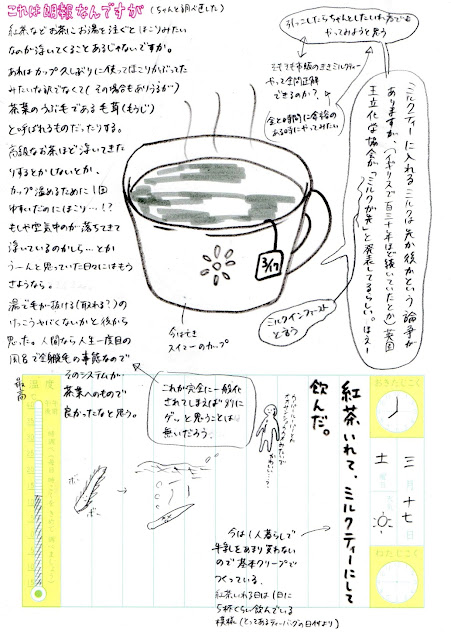 これは朗報なんですが (ちゃんと調べ直した)
紅茶などお茶にお湯を注ぐとほこりみたい
なのが浮いてくることあるじゃないですか。
あれはカップ久しぶりに使ってほこりかぶってた
みたいな訳でなくて(その場合もありうるが)
茶葉のうぶ毛である毛茸(もうじ)
と呼ばれるものだったりする。
高級なお茶ほど浮いてきた
りするとかしないとか、
カップ温めるために1回
ゆすいだのにほこり…!?
もしや空気中のが落ちてきて
浮いているのかしら…とか
うーんと思っていた日々にはもう
さようなら。
湯で毛が抜ける(取れる?)の
けっこうヤバくないかと後から
思った。人間なら人生一度目の
風呂で全身脱毛の事態なので
そのシステムが
茶葉へのもので
良かったなと思う。
引っこしたらちゃんとしたいれ方でも
やってみようと思う
そもそも市販のミルクティー
やって全問正解
できるのか?
金と時間に余裕の
ある時にやってみたい
ミルクティーに入れるミルクは先か後かという論争が
ありますが、(イギリスで百三十年ほど続いていたとか)英国
王立化学協会が「ミルクが先」と発表してるらしい。はえー
ミルクインファースト
と言う
3/17
今はなき
スイミーのカップ
これが完全に一般化
されてしまえば別に
ゲッと思うことは
無いだろう。
ボー
ボー
紅茶いれて、ミルクティーにして
飲んだ。
今は1人暮らしで
牛乳をあまり買わない
ので基本クリープで
つくっている、
紅茶いれる日は1日に
5杯くらい飲んでいる
模様(とってあるティーバッグの日付より)
おきたじこく
三月十七日
土
ねたじこく
温度
最高